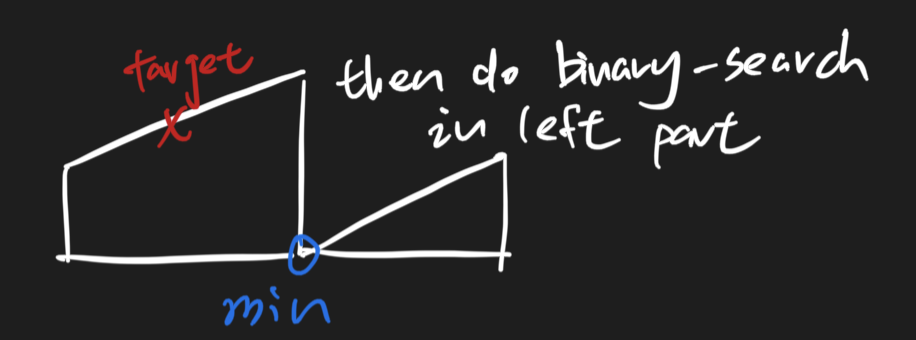 target
then do binary-search
in left part
min